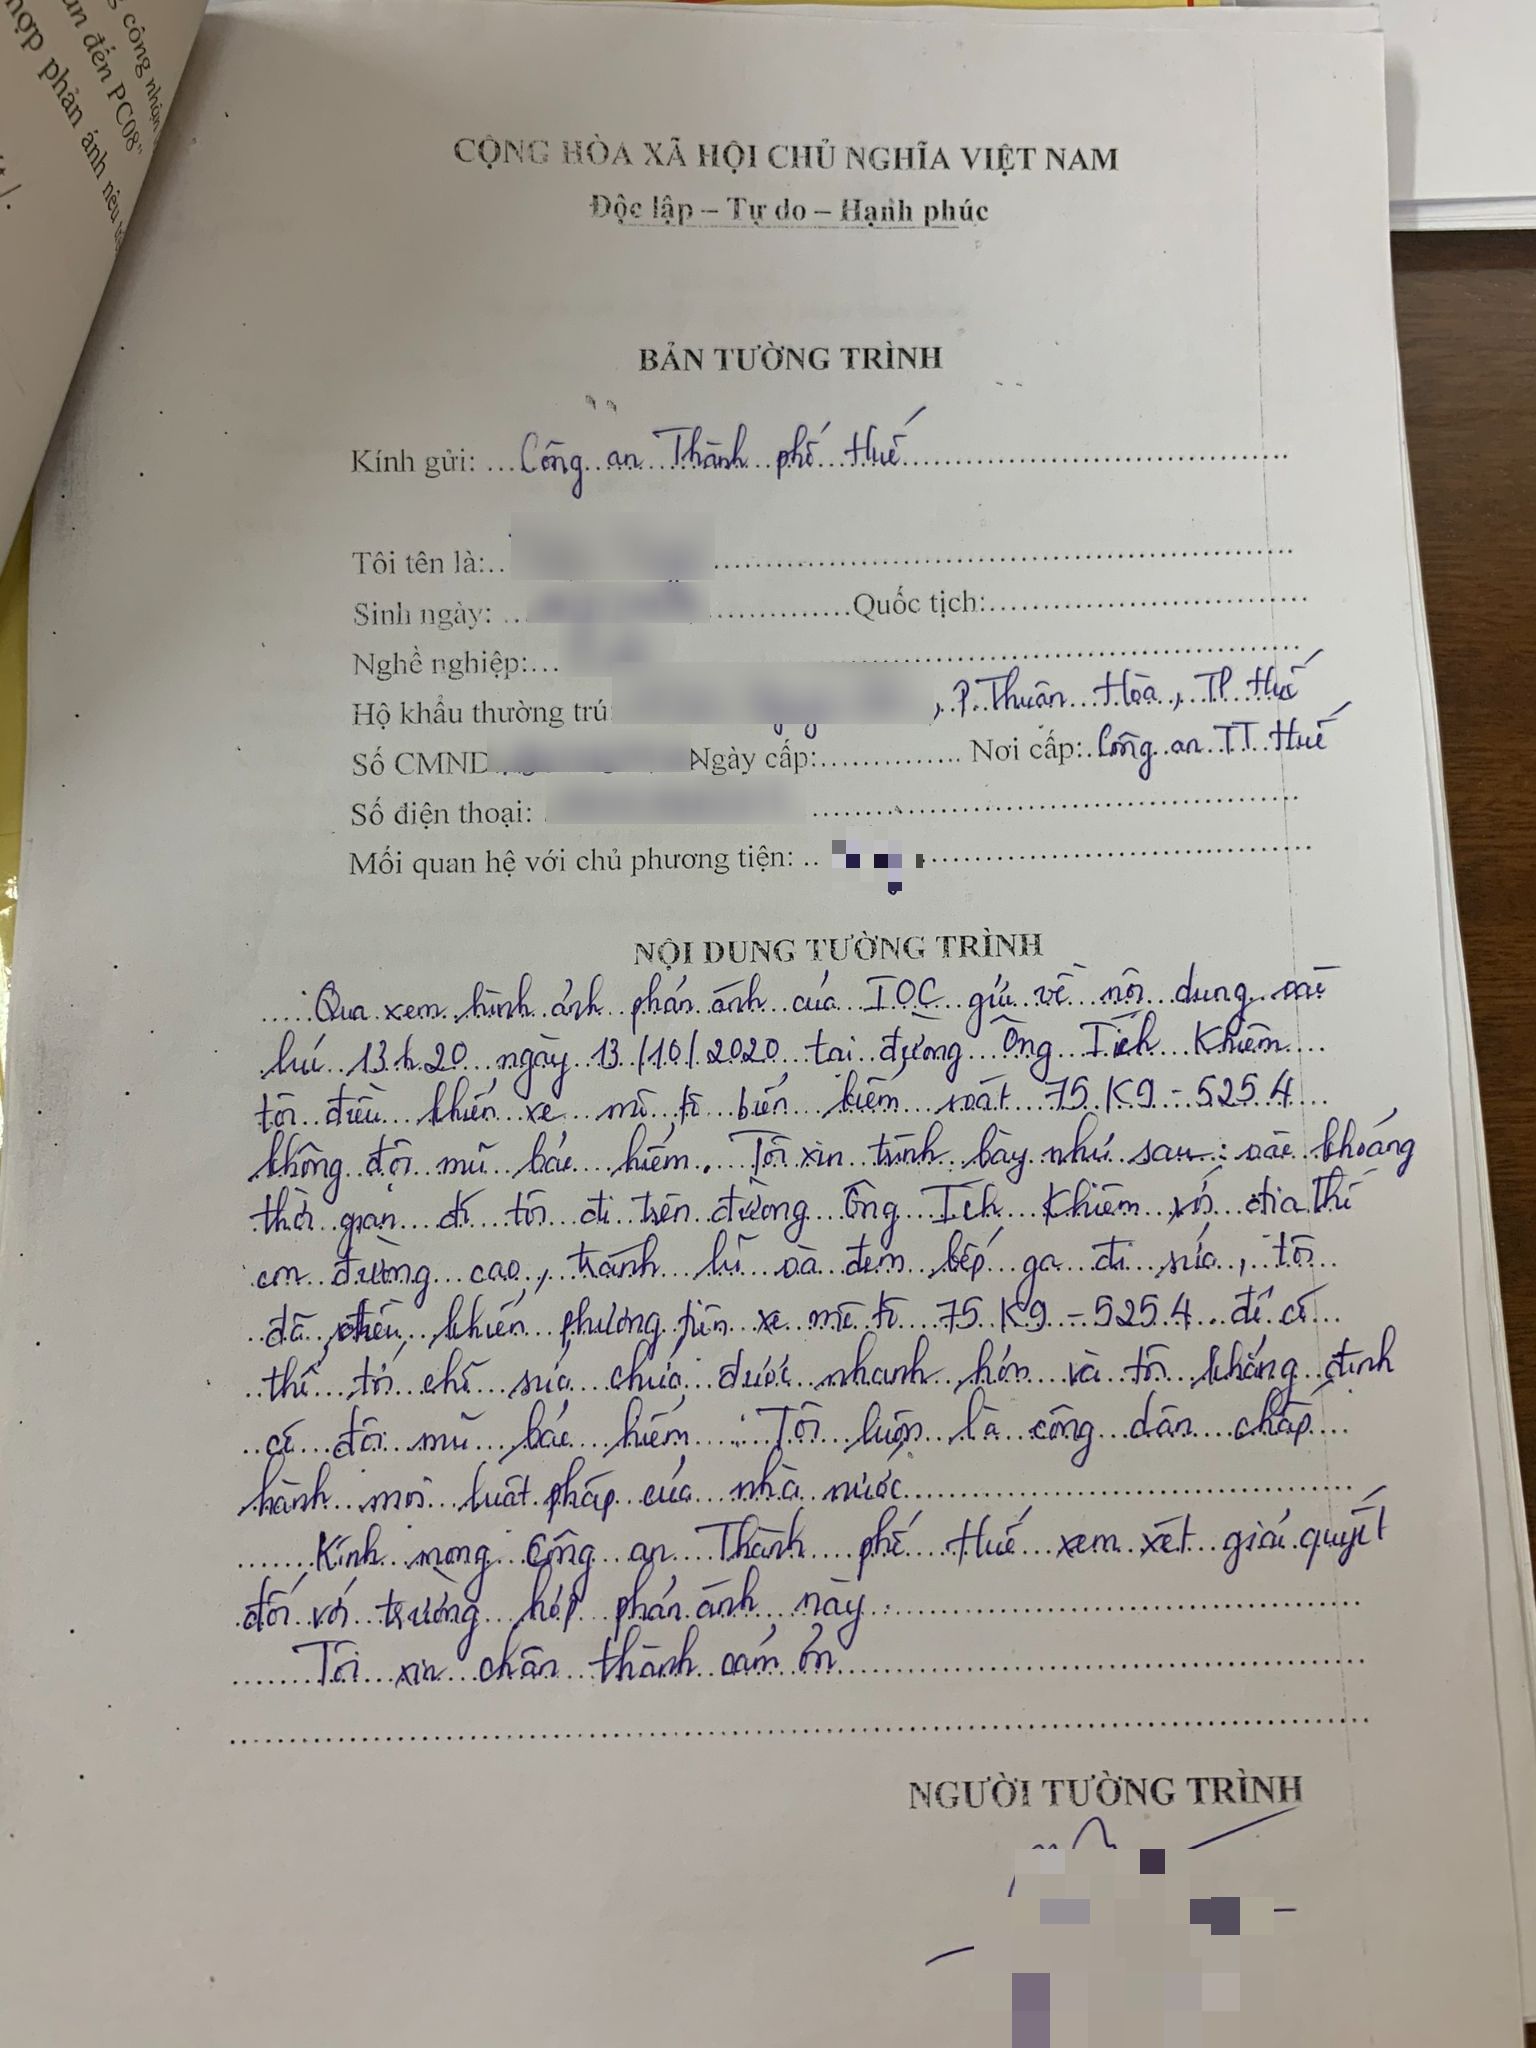 công nhận
n đến PC08"
hợp phản ánh nêu
CỘNG HÒA XÃ HỘI CHỦ NGHĨA VIỆT NAM
Độc lập – Tự do – Hạnh phúc
BẢN TƯỜNG TRÌNH
Kính gửi: Công an Thành phố Huế
Tôi tên là:
Sinh ngày: Quốc tịch:
Nghề nghiệp:
Hộ khẩu thường trú: , P. Thuận Hòa, TP Huế
Số CMND Ngày cấp: Nơi cấp: Công an TT Huế
Số điện thoại:
Mối quan hệ với chủ phương tiện:
NỘI DUNG TƯỜNG TRÌNH
Qua xem hình ảnh phản ánh của IOC gửi về nội dung vào
lúc 13h20 ngày 13/10/2020 tại đường Ông Ích Khiêm
tôi điều khiển xe mô tô biển kiểm soát 75K9-5254
không đội mũ bảo hiểm. Tôi xin trình bày như sau: vào khoảng
thời gian đó tôi đi trên đường Ông Ích Khiêm với địa thế
con đường cao, tránh lũ và đem bếp ga đi sửa, tôi
đã điều khiển phương tiện xe mô tô 75K9-5254 để có
thể tới chỗ sửa chữa được nhanh hơn và tôi khẳng định
có đội mũ bảo hiểm. Tôi luôn là công dân chấp
hành mọi luật pháp của nhà nước
Kính mong Công an Thành phố Huế xem xét giải quyết
đối với trường hợp phản ánh này.
Tôi xin chân thành cám ơn
NGƯỜI TƯỜNG TRÌNH